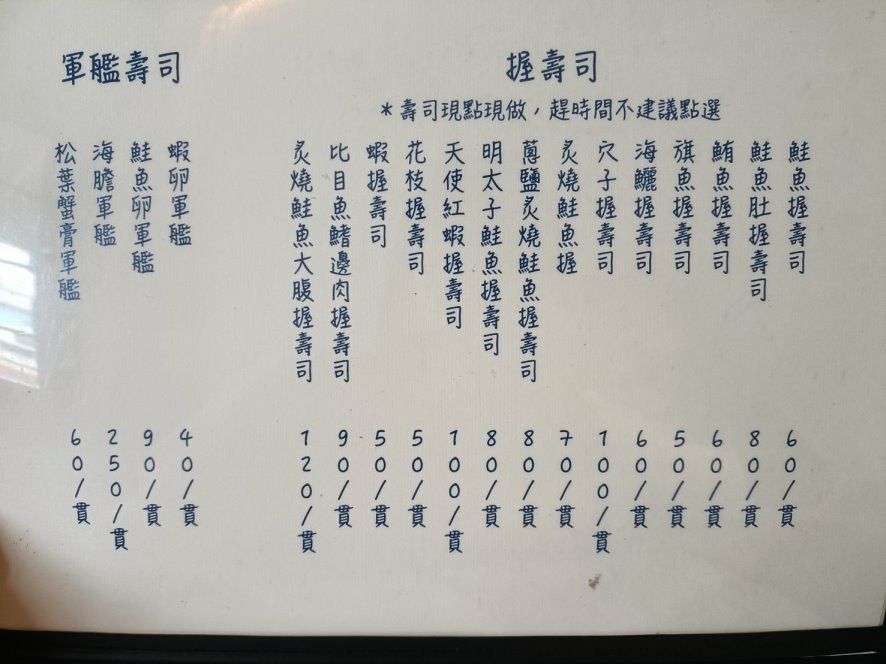 握壽司
＊壽司現點現做，趕時間不建議點選
鮭魚握壽司 60/貫
鮭魚肚握壽司 80/貫
鮪魚握壽司 60/貫
旗魚握壽司 50/貫
海鱺握壽司 60/貫
穴子握壽司 100/貫
炙燒鮭魚握 70/貫
蔥鹽炙燒鮭魚握壽司 80/貫
明太子鮭魚握壽司 80/貫
天使紅蝦握壽司 100/貫
花枝握壽司 50/貫
蝦握壽司 50/貫
比目魚鰭邊肉握壽司 90/貫
炙燒鮭魚大腹握壽司 120/貫
軍艦壽司
蝦卵軍艦 40/貫
鮭魚卵軍艦 90/貫
海膽軍艦 250/貫
松葉蟹膏軍艦 60/貫